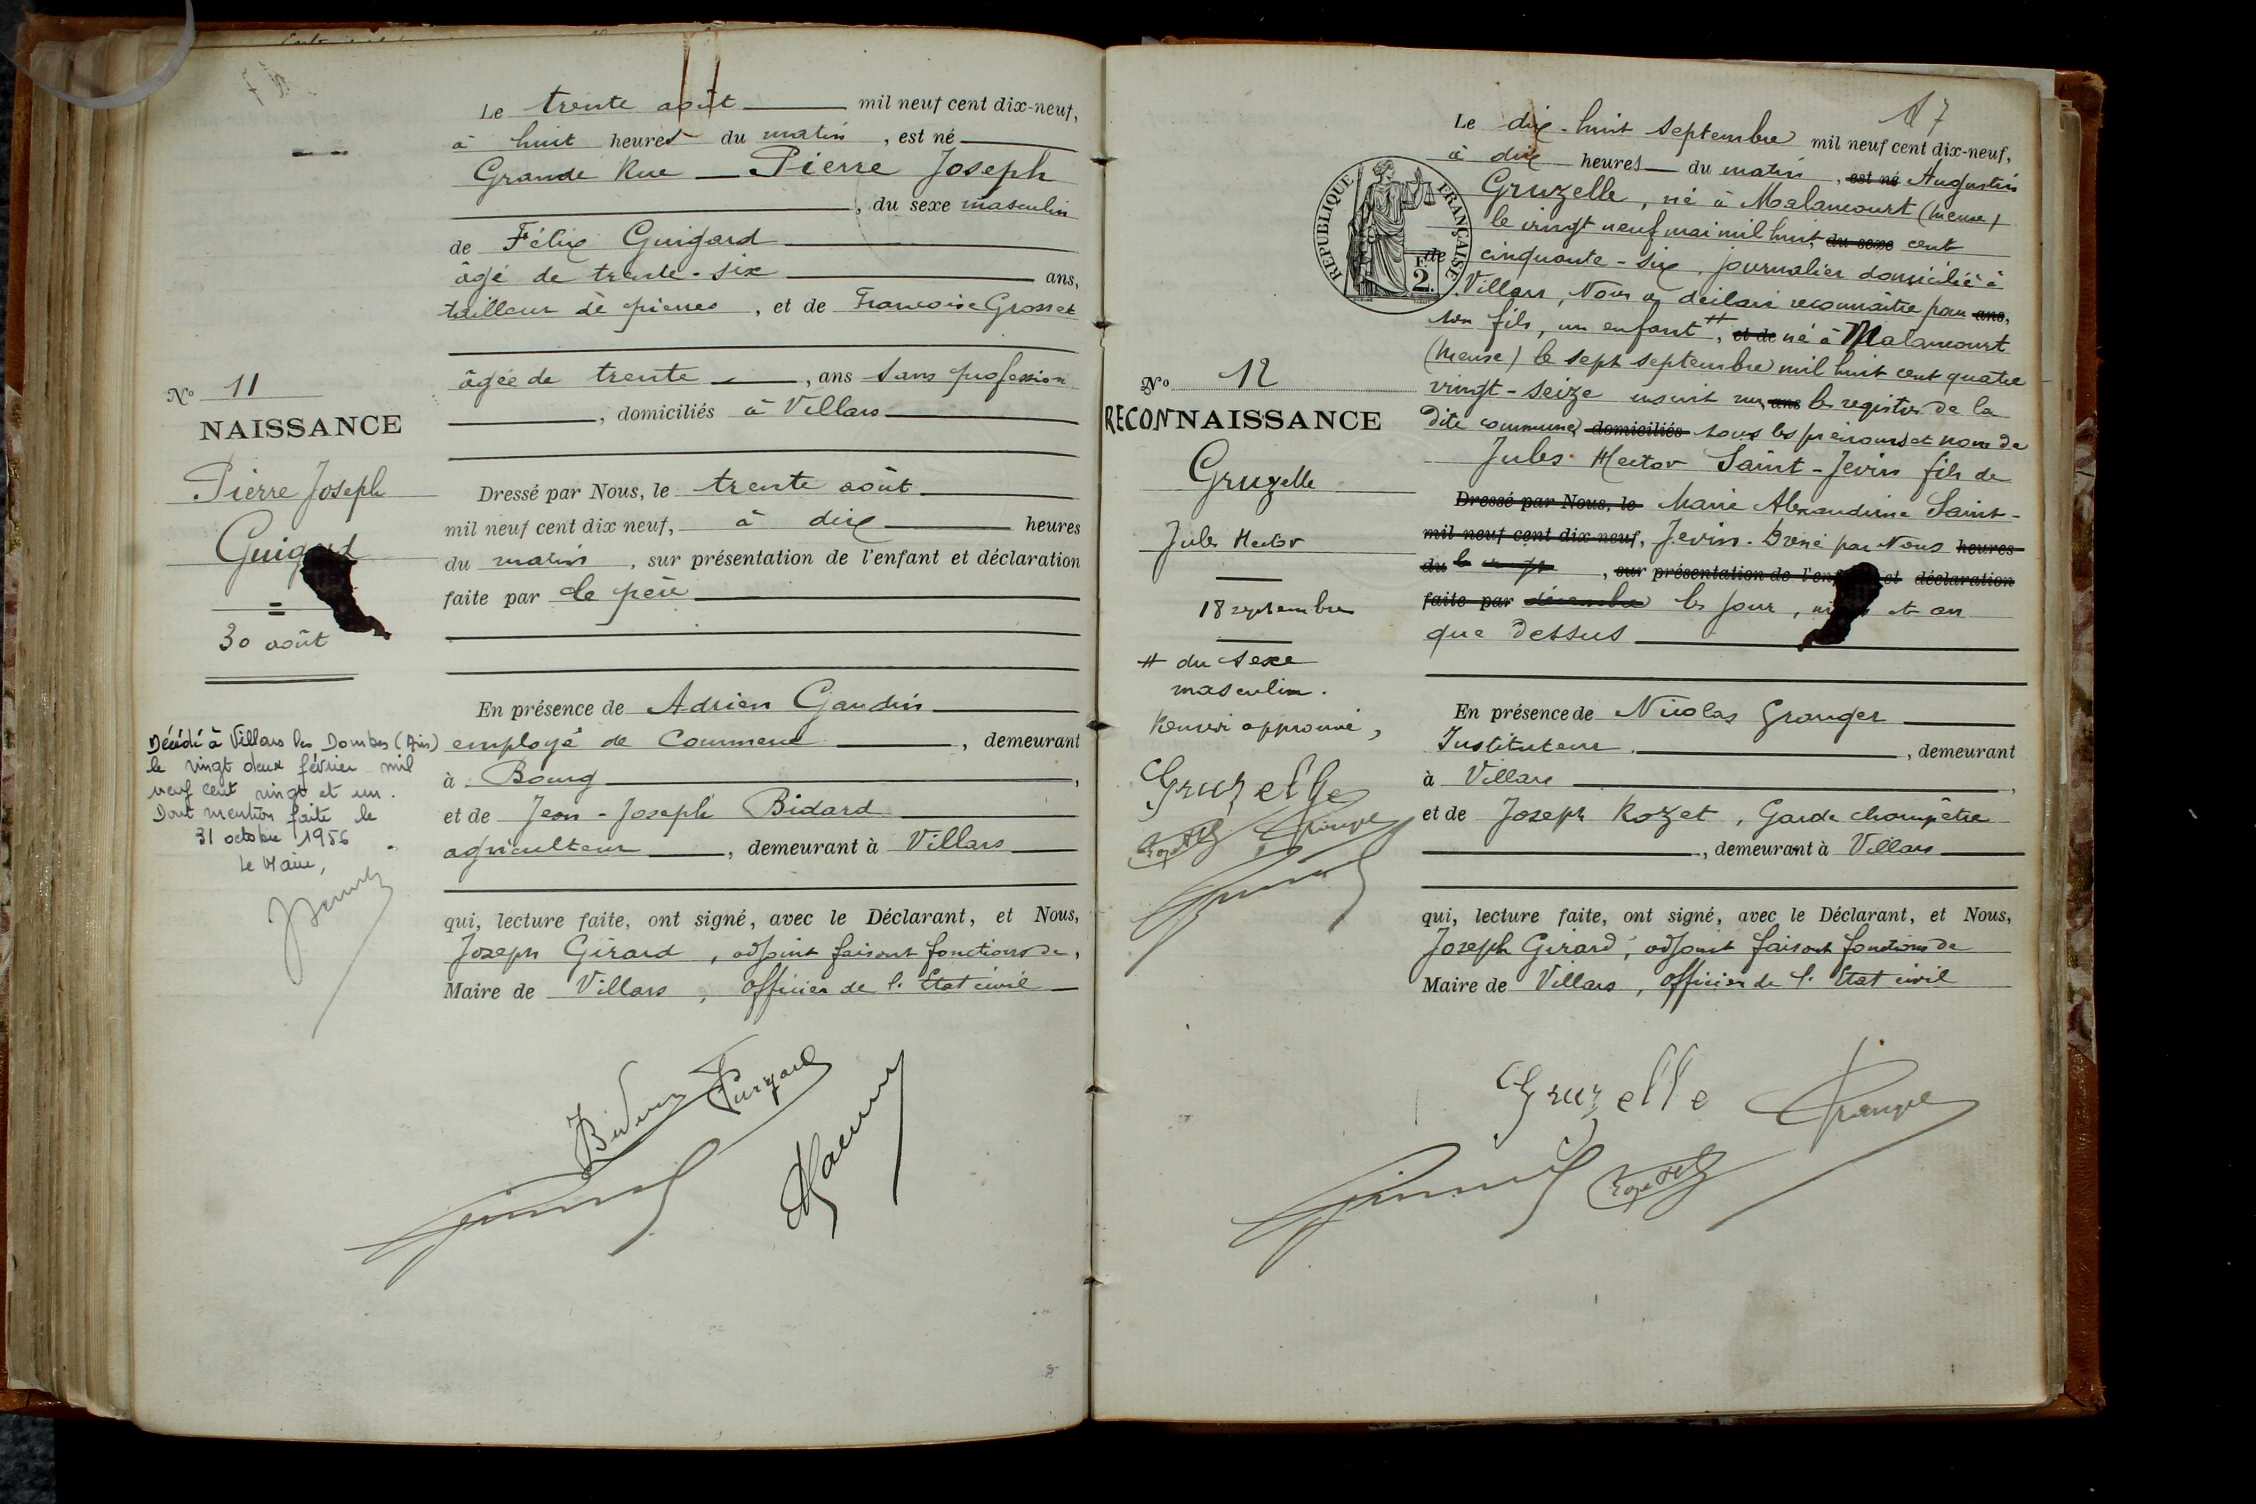 Le trente août mil neuf cent dix-neuf,
à huit heures du matin, est né
Grande Rue Pierre Joseph
, du sexe masculin
de Félix Guigard
âgé de trente-six ans,
tailleur de pierres, et de Francoise Grosset
âgée de trente, ans sans profession
, domiciliés à Villars
Dressé par Nous, le trente août
mil neuf cent dix neuf, à dix heures
du matin, sur présentation de l'enfant et déclaration
faite par le père
En présence de Adrien Gaudin
employé de Commerce, demeurant
à Bourg,
et de Jean-Joseph Bidard
agriculteur, demeurant à Villars
qui, lecture faite, ont signé, avec le Déclarant, et Nous,
Joseph Girard, adjoint faisant fonctions de,
Maire de Villars, officier de l'Etat civil
No 11
NAISSANCE
Pierre Joseph
Guigard
30 août
Décédé à Villars les Dombes (Ain)
le vingt deux février mil
neuf cent vingt et un.
Dont mention faite le
31 octobre 1956
Le Maire,
17
Le dix-huit septembre mil neuf cent dix-neuf,
à dix heures du matin, est né Augustin
Gruzelle, né à Malancourt (Meuse)
le vingt neuf mai mil huit du sexe cent
de cinquante-six, journalier domicilié à
Villars, Nous a déclaré reconnaître pour ans,
son fils, un enfant #, et de né à Malancourt
(Meuse) le sept septembre mil huit cent quatre
vingt-seize inscrit sur ans les registres de la
dite commune, domiciliés sous les prénoms et nom de
Jules Hector Saint-Jevin fils de
Dressé par Nous, le Marie Alexandrine Saint-
mil neuf cent dix neuf, Jevin. Dressé par Nous heures
du le, sur présentation de l'enfant et déclaration
faite par décembre les jour, mois et an
que dessus
En présence de Nicolas Granger
Instituteur, demeurant
à Villars,
et de Joseph Rozet, Garde champêtre
, demeurant à Villars
qui, lecture faite, ont signé, avec le Déclarant, et Nous,
Joseph Girard, adjoint faisant fonctions de
Maire de Villars, officier de l'Etat civil
Gruzelle
REPUBLIQUE FRANÇAISE
F. 2.
No 12
RECONNAISSANCE
Gruzelle
Jules Hector
18 septembre
# du sexe
masculin.
Renvoi approuvé,
Gruzelle